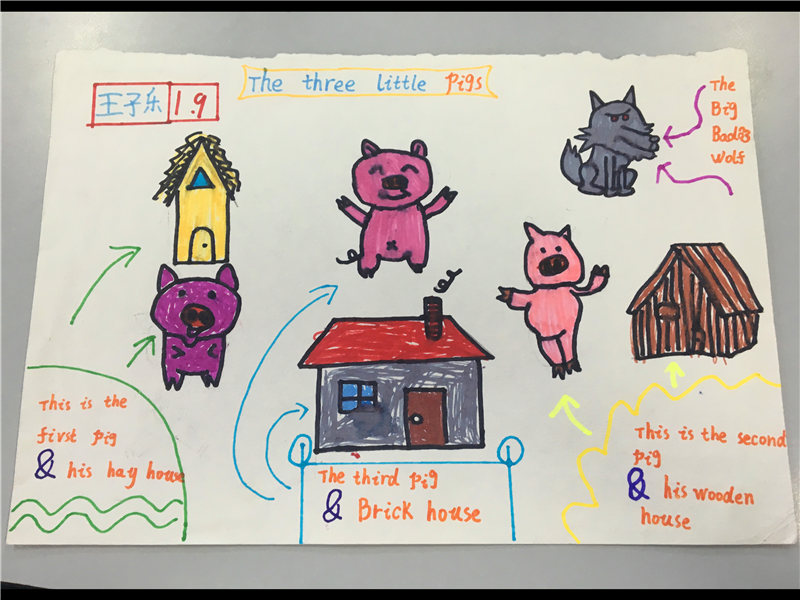 The three little pigs
王子乐 1.9
The
Big
Bad
wolf
This is the
first pig
& his hay house
The third pig
& Brick house
This is the second
pig
& his wooden
house